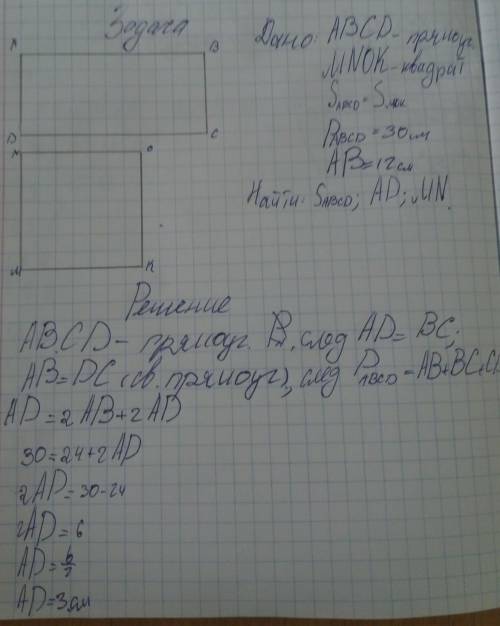 Задача
Дано: ABCD - прямоуг.
MNOK - квадрат
P ABCD = 30 см
AB = 12 см
Найти: S ABCD; AD; MN.
A B
D C
N O
M K
Решение
ABCD - прямоуг. след AD = BC;
AB = DC (св. прямоуг), след P ABCD = AB + BC + CD
AD = 2AB + 2AD
30 = 24 + 2AD
2AD = 30 - 24
2AD = 6
AD = 6/2
AD = 3 см